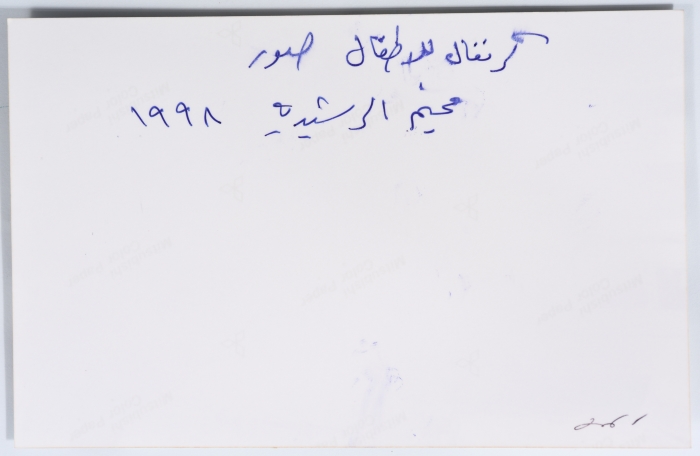 كرنفال للاطفال صور
مخيم الرشيدية ١٩٩٨